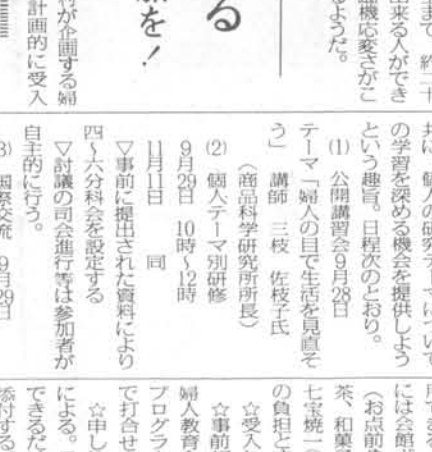 まで 約二十
出来る人ができ
臨機応変さがこ
るようだ。
る
を!
が企画する婦
計画的に受入
共に、個人の研究テーマについて
の学習を深める機会を提供しよう
という趣旨。日程次のとおり。
(1) 公開講習会9月28日
テーマ「婦人の目で生活を見直そ
う」 講師 三枝 佐枝子氏
(商品科学研究所所長)
(2) 個人テーマ別研修
9月29日 10時〜12時
11月11日 同
▽事前に提出された資料により
四〜六分科会を設定する
▽討議の司会進行等は参加者が
自主的に行う。
(3) 国際交流 9月29日
用できる
には会館
(お点前
茶、和菓
七宝焼一
の負担と
☆受入
☆事前
婦人教育
プログラ
で打合せ
☆申し
による。
できるだ
添付する